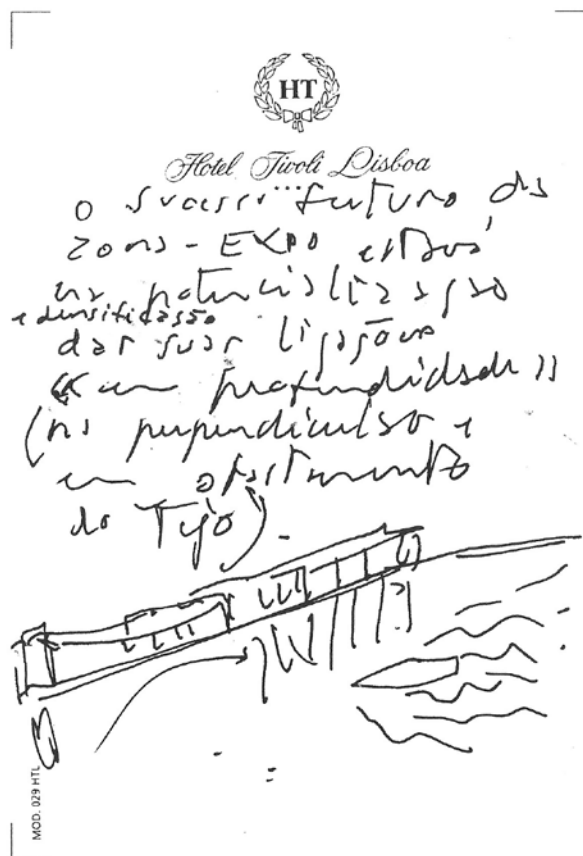 HT
Hotel Tivoli Lisboa
o sucesso futuro da
zona-EXPO estará
na potencialização
e densificação
das suas ligações
«em profundidade»
(na perpendicular e
em afastamento
do Tejo).
MOD. 029 HTL